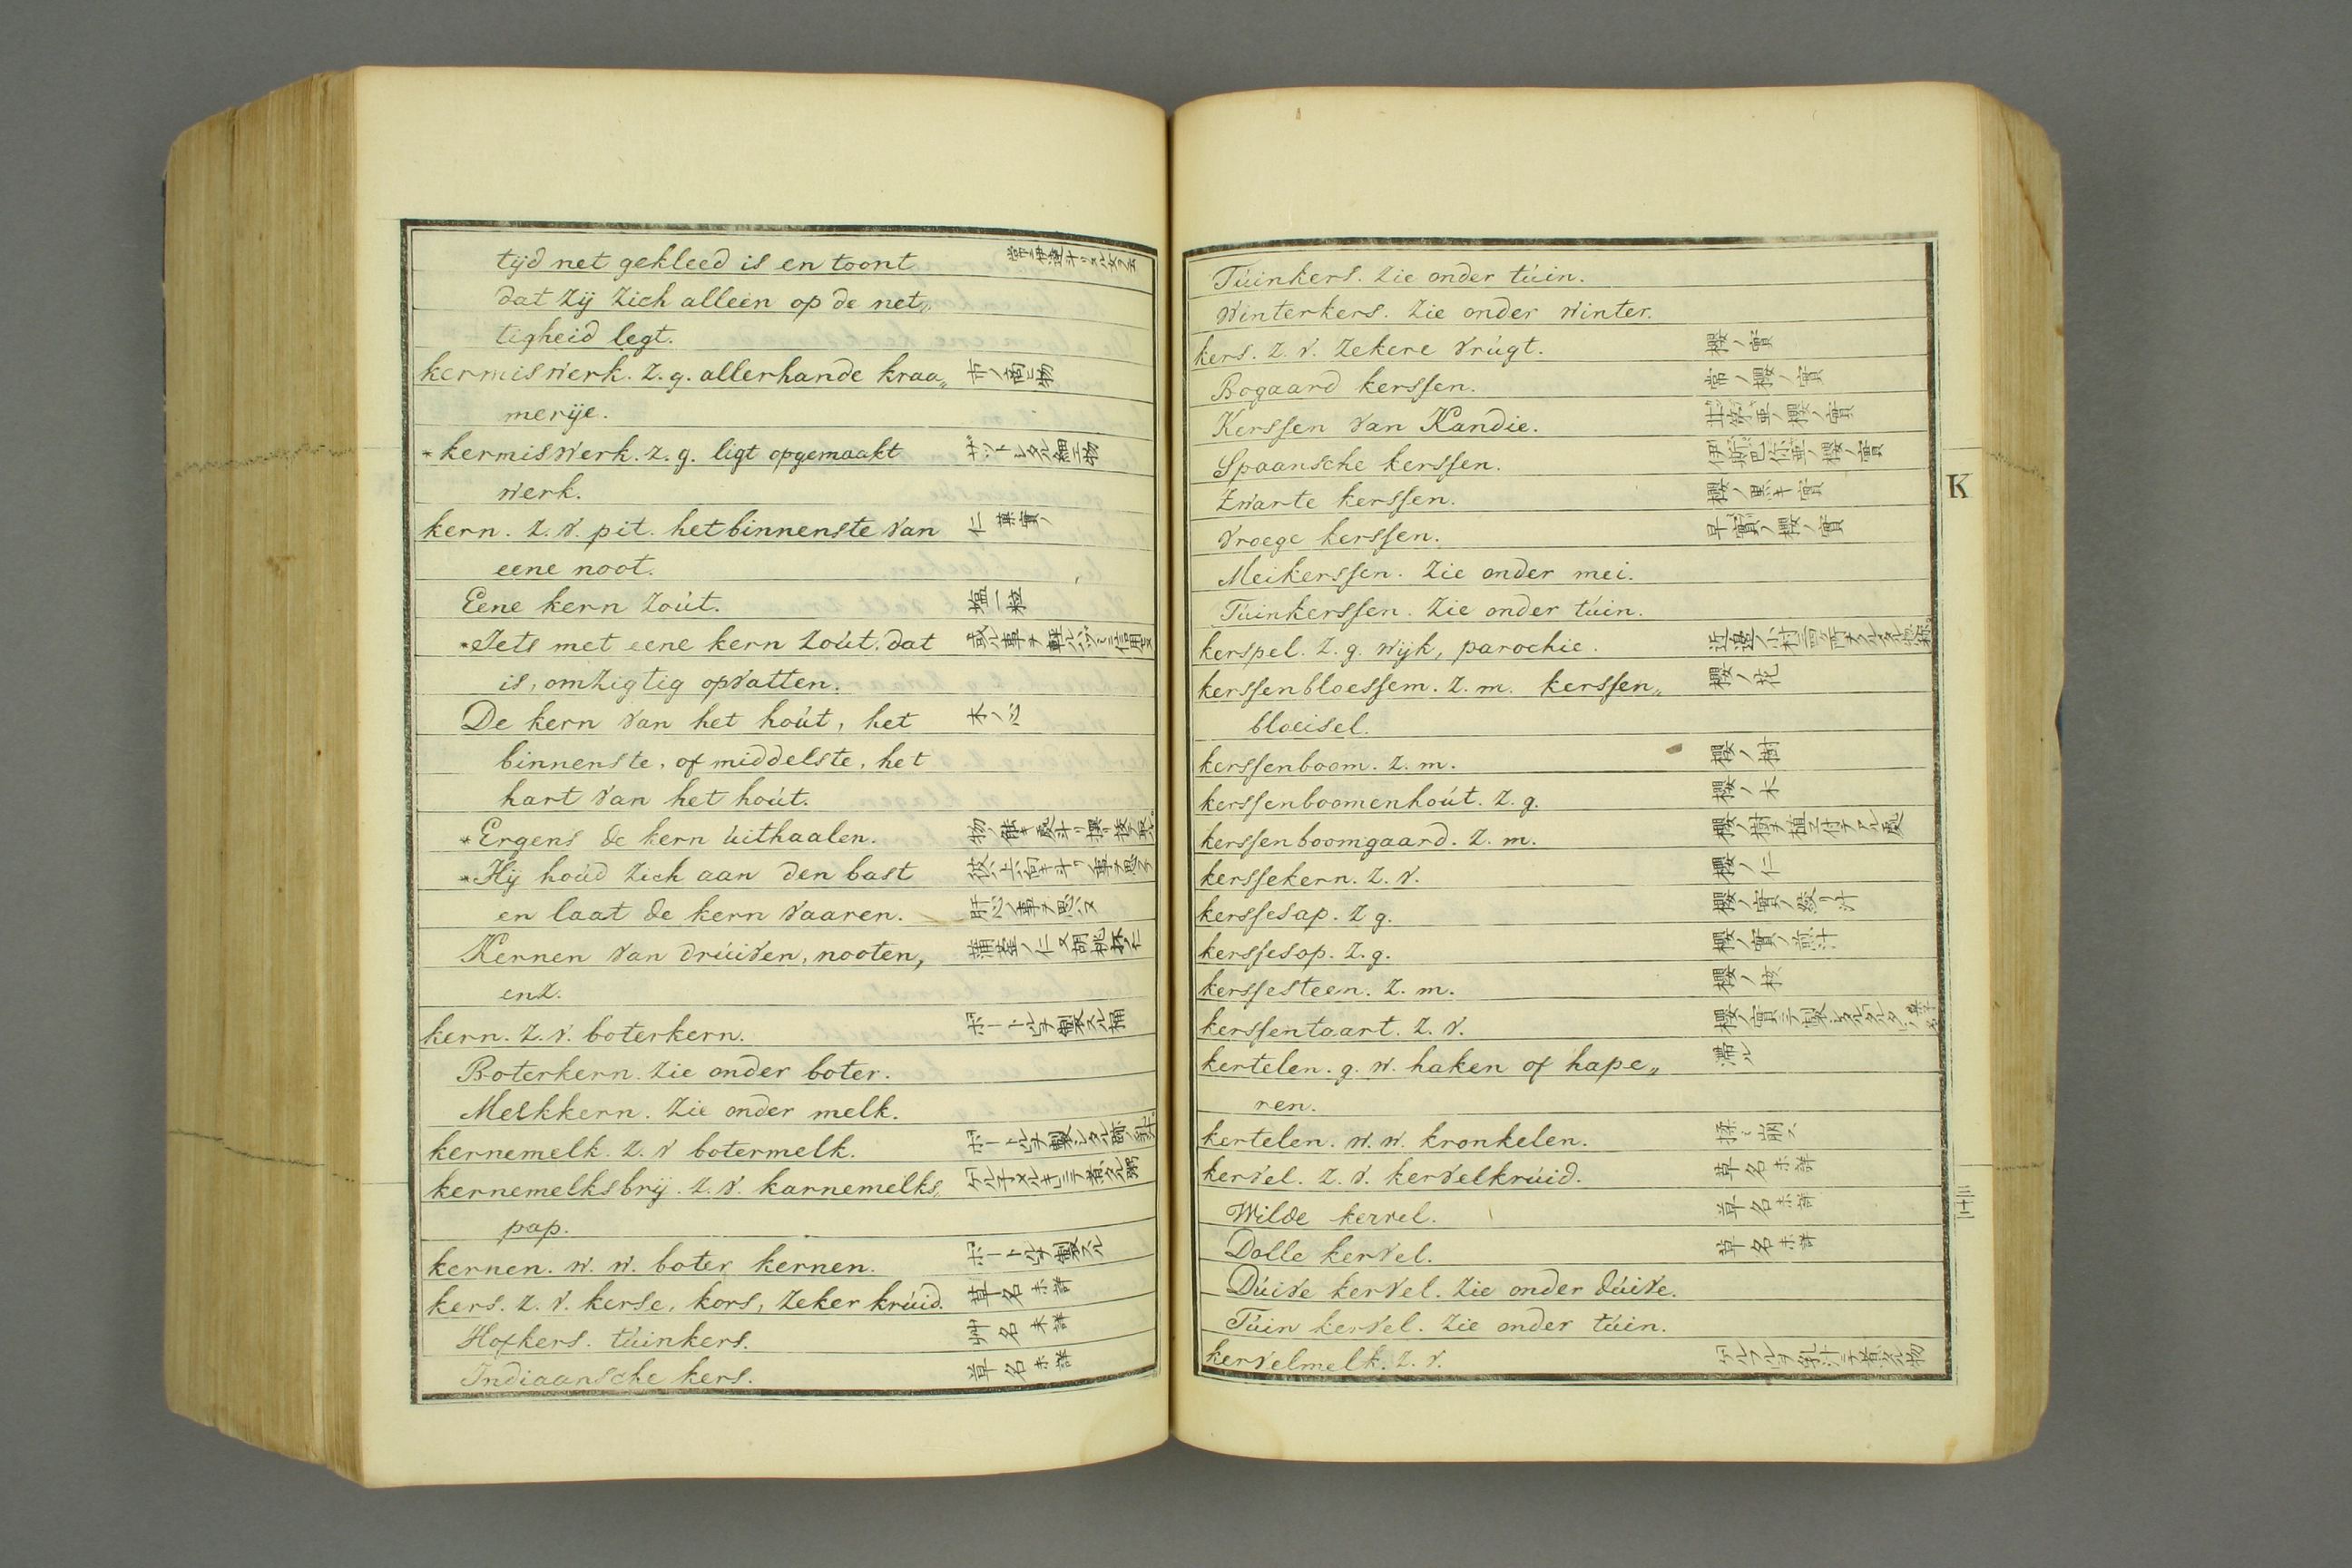 tijd net gekleed is en toont
dat zij zich alleen op de net„
tigheid legt.
kermiswerk. z. g. allerhande kraa„ 市ノ商ヒ物
merije.
* kermiswerk. z. g. ligt opgemaakt ザツトシタル細工物
werk.
kern. z. v. pit. het binnenste van 仁 菓實ノ
eene noot.
Eene kern zoút.塩一粒
* Iets met eene kern zoút. dat
is, omzigtig opvatten.
De kern van het hoút, het 木ノ心
binnenste, of middelste, het
hart van het hoút.
* Ergens de kern úithaalen.
* Hij hoúd zich aan den bast
en laat de kern vaaren. 肝心ノ事ヲ思ハヌ
Kernen van drúiven, nooten,
enz.
kern. z. v. boterkern. ボートルヲ製スル桶
Boterkern. zie onder boter.
Melkkern. zie onder melk.
kernemelk. z. v botermelk.
kernemelksbrij. z. v. karnemelks„
pap.
kernen. w. w. boter kernen. ボートルヲ製スル
kers. z. v. kerse, kors, zeker krúid. 草名未詳
Hofkers. túinkers. 艸名未詳
Indiaansche kers. 草名未詳
Túinkers. zie onder túin.
Winterkers. zie onder winter.
kers. z. v. zekere vrúgt. 櫻ノ實
Bogaard kerssen. 常ノ櫻ノ實
Kerssen van Kandie.
Spaansche kerssen. 伊斯巴你亜ノ櫻ノ實
Zwarte kerssen. 櫻ノ黒キ實
Vroege kerssen. 早實ノ櫻ノ實
Meikerssen. zie onder mei.
Túinkerssen. zie onder túin.
K
kerspel. z. g. wijk, parochie.
kerssenbloessem. z. m. kerssen„ 櫻ノ花
bloeisel.
kerssenboom. z. m. 櫻ノ樹
kerssenboomenhoút. z. g. 櫻ノ木
kerssenboomgaard. z. m. 櫻ノ樹ヲ植エ付テアル處
kerssekern. z. v. 櫻ノ仁
kerssesap. z g. 櫻ノ實ノ絞リ汁
kerssesop. z. g. 櫻ノ實ノ煎汁
kerssesteen. z. m. 櫻ノ核
kerssentaart. z. v.
kertelen. g. w. haken of hape„ 滞ル
ren.
kertelen. w. w. kronkelen. 揉ミ崩ス
kervel. z. v. kervelkrúid. 草名未詳
Wilde kervel. 草名未詳
Dolle kervel. 草名未詳
Dúive kervel. zie onder dúive.
Túin kervel. zie onder túin.
kervelmelk. z. v.